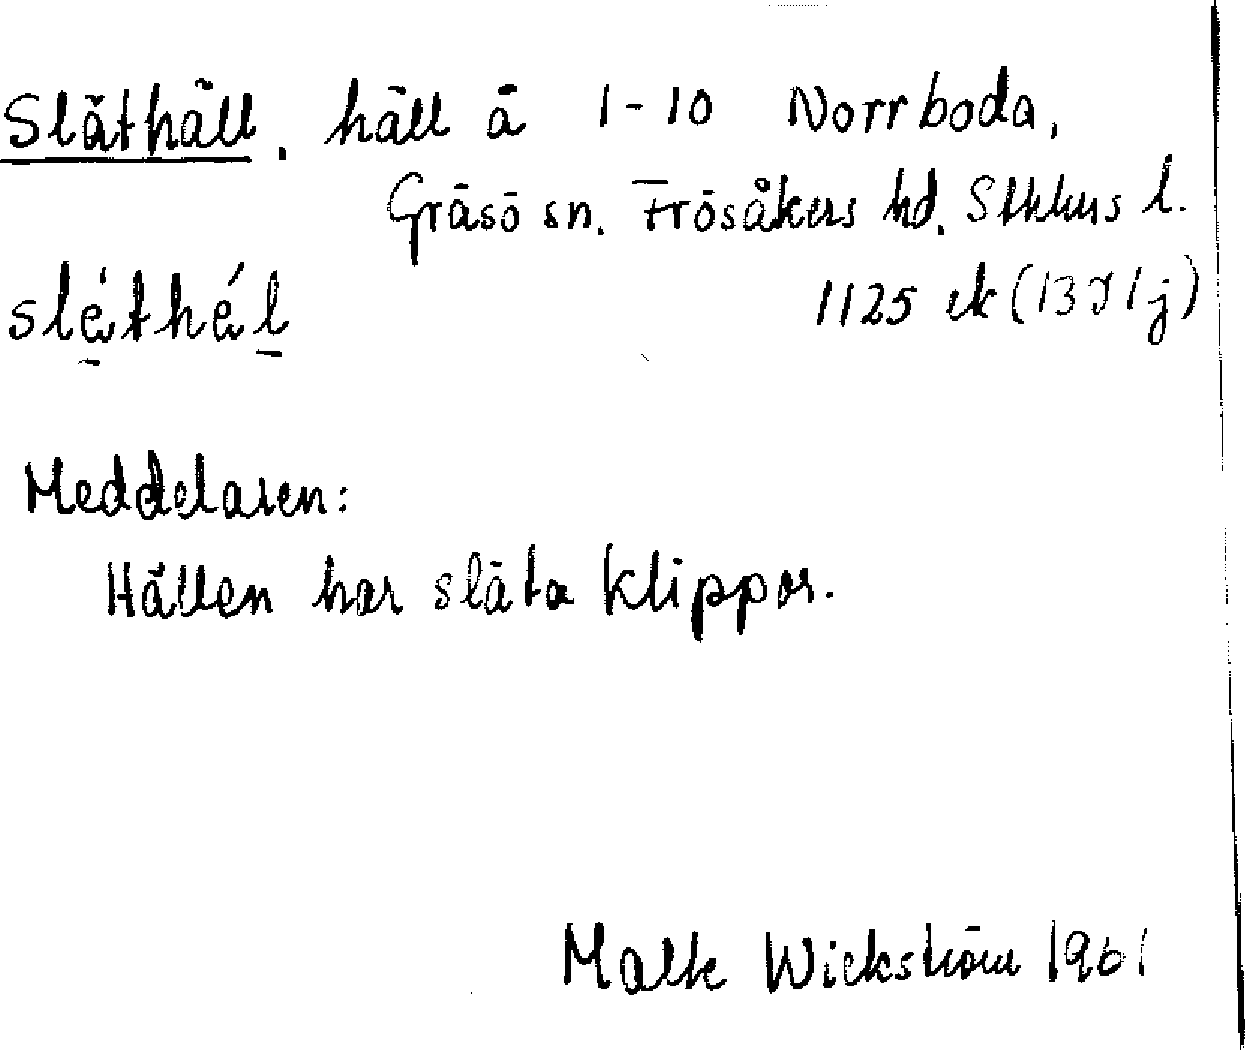 Släthäll, häll å 1-10 Norrboda,
Gräsö sn. Frösåkers hd. Sthlms l.
slä́thä́l 1125 ek (13I1j)
Meddelaren:
Hällen har släta klippor.
Malte Wickström 1961